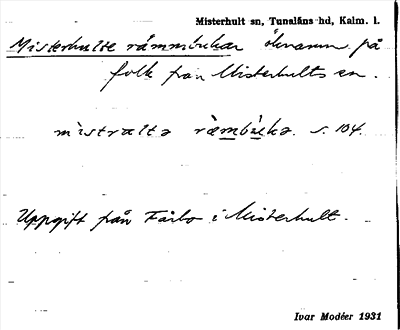 Misterhult sn, Tunaläns hd, Kalm. l.
Misterhulte råmmbukar öknamn på
folk från Misterhults sn.
mistralta råmbuka. s. 104.
Uppgift från Fårbo i Misterhult.
Ivar Modéer 1931